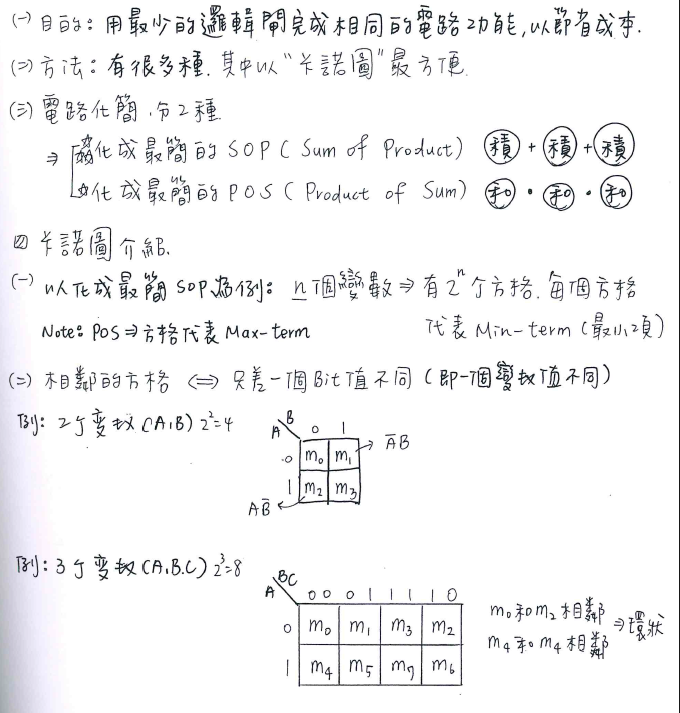 (一) 目的：用最少的邏輯閘完成相同的電路功能，以節省成本.
(二) 方法：有很多種. 其中以"卡諾圖"最方便
(三) 電路化簡，分2種
⇒ 化成最簡的 SOP (Sum of Product) 積 + 積 + 積
化成最簡的 POS (Product of Sum) 和 · 和 · 和
四 卡諾圖介紹.
(一) 以化成最簡 SOP 為例：n個變數 ⇒ 有2ⁿ个方格. 每個方格
代表 Min-term (最小項)
Note: POS ⇒ 方格代表 Max-term
(二) 相鄰的方格 ⟺ 只差一個Bit值不同 (即一個變数值不同)
例：2个变数 (A,B) 2²=4
A\B 0 1
0 m₀ m₁ → A̅B
1 m₂ m₃
AB̅ ←
例：3个变数 (A.B.C) 2³=8
A\BC 00 01 11 10
0 m₀ m₁ m₃ m₂
1 m₄ m₅ m₇ m₆
m₀和m₂相鄰
m₄和m₄相鄰 ⇒ 環狀